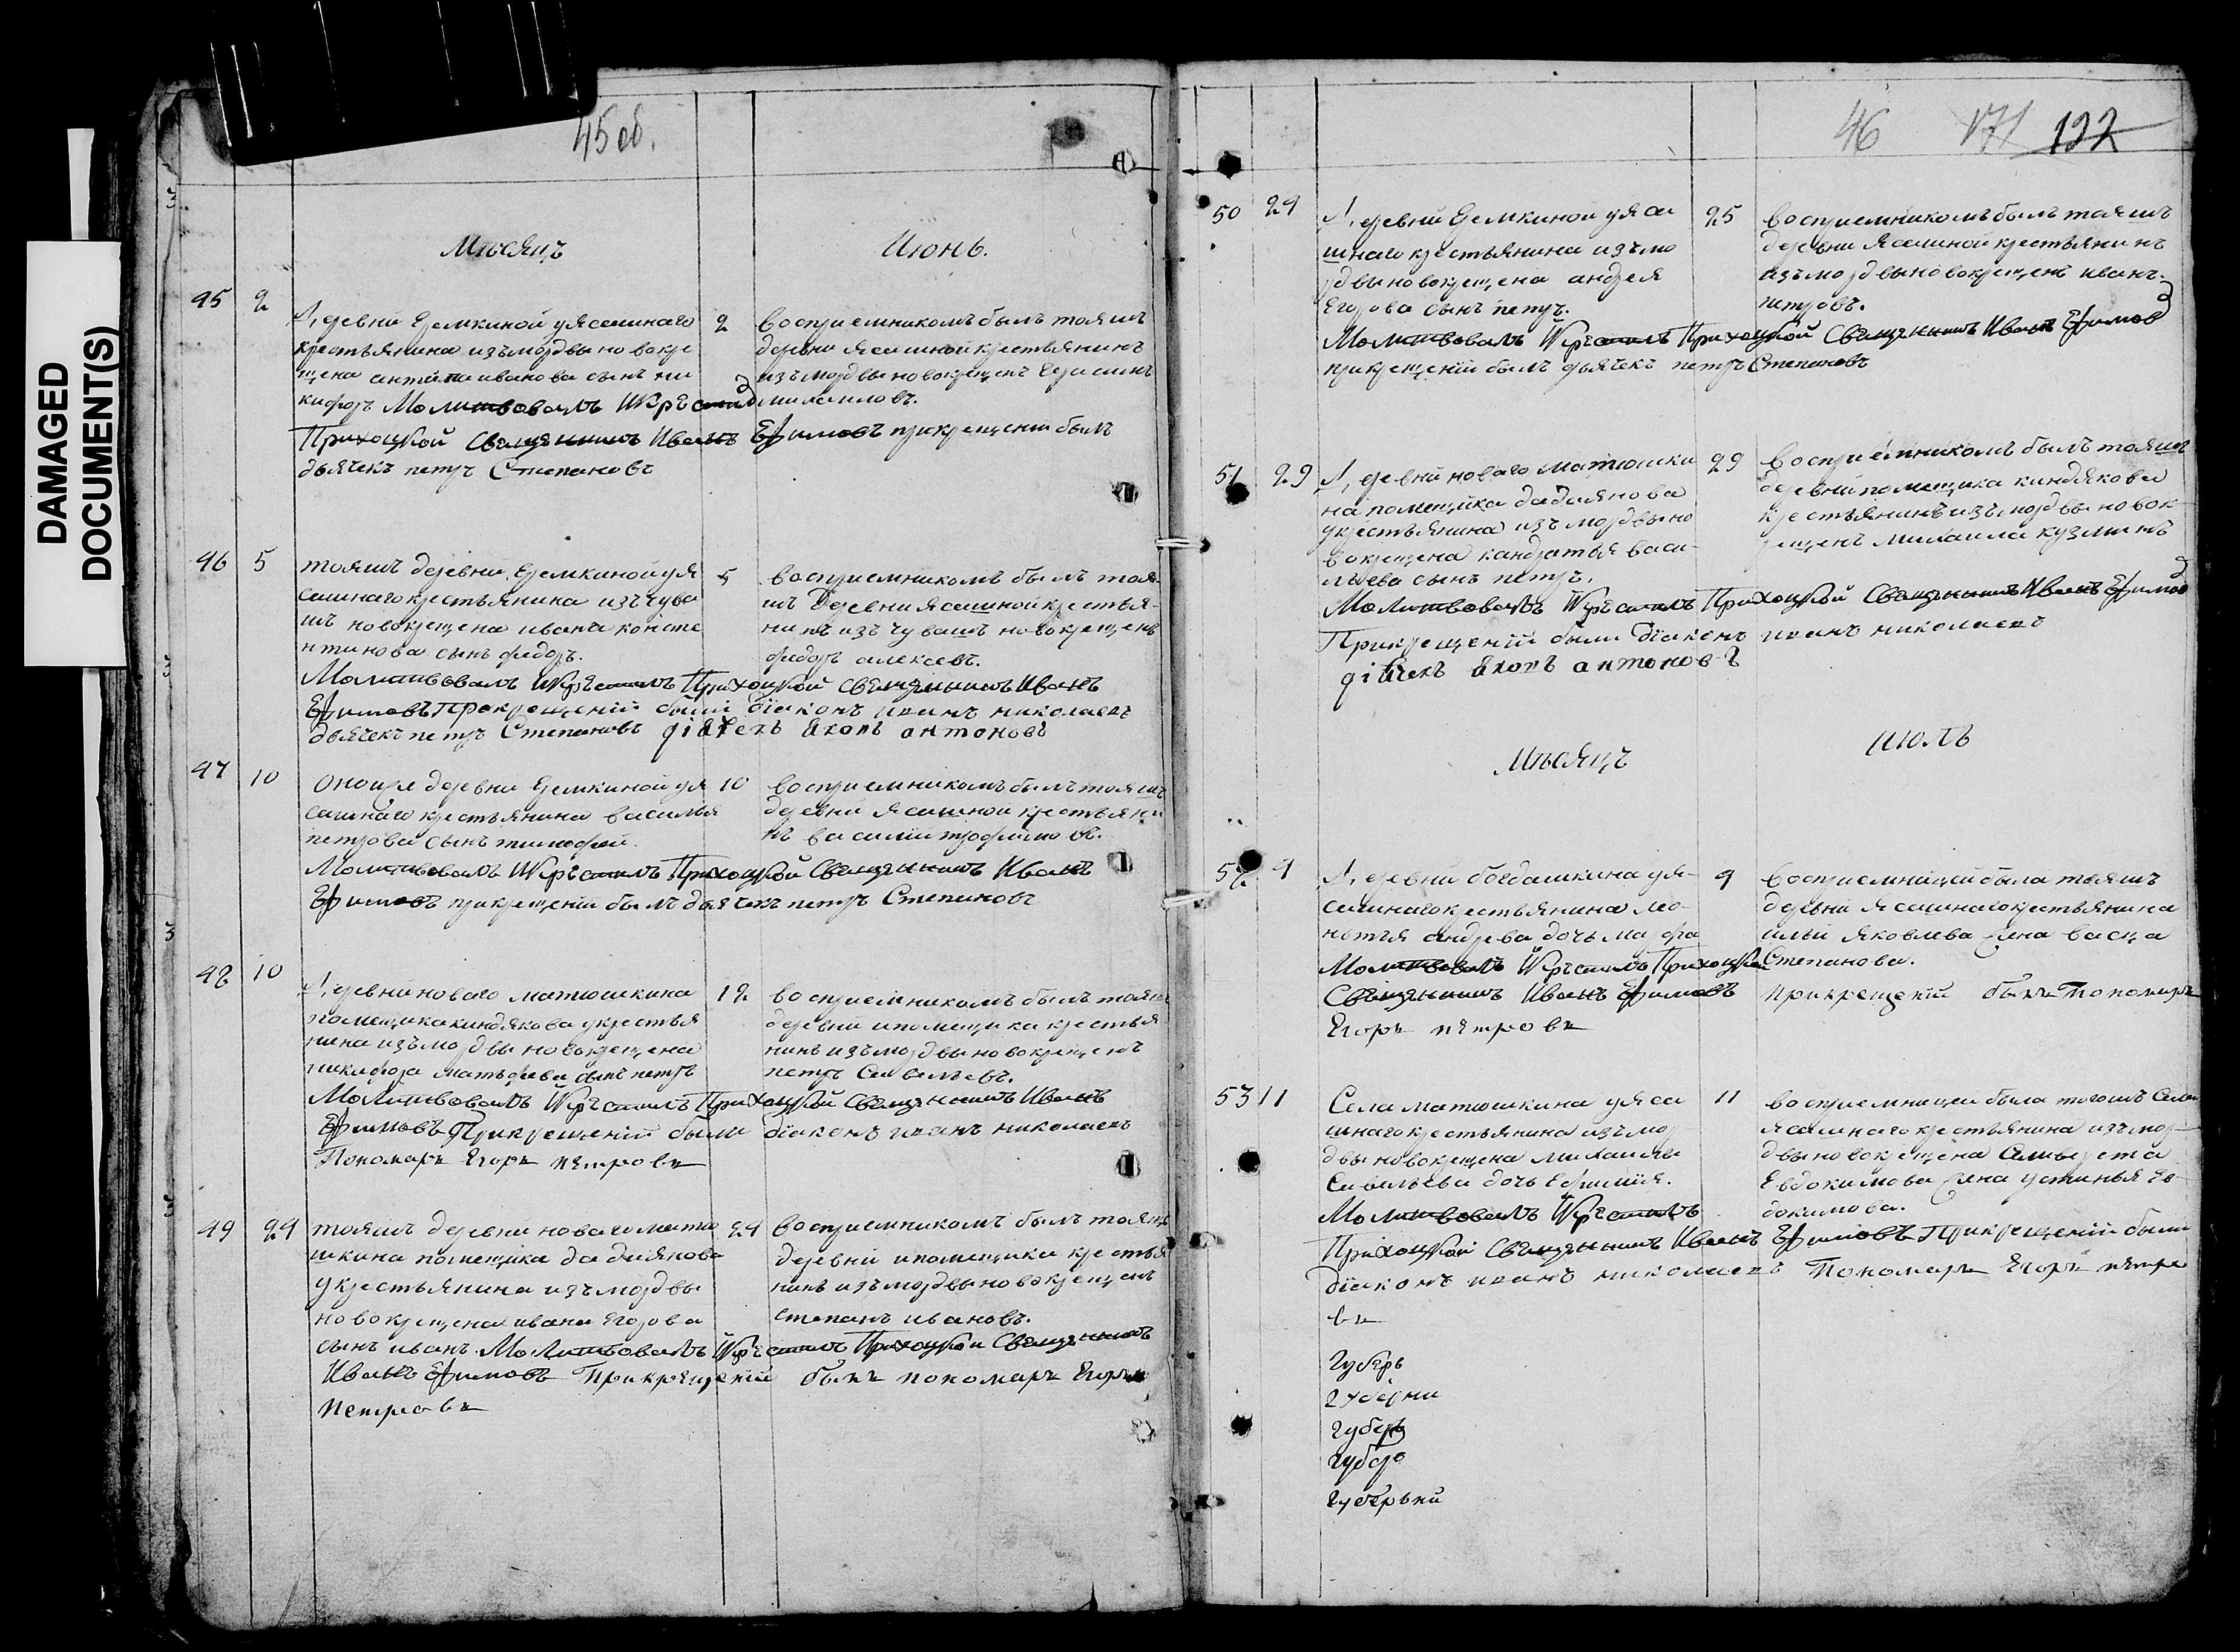 DAMAGED
DOCUMENT(S)
45 об.
Мѣсяцъ
Июнь.
45 2
Деревни Еремкиной уясашнаго
крестьянина изъмордвы новокре
щена антипа иванова сынъ ни
кифоръ Молитвовалъ Икрестилъ
Приходской Священникъ Иванъ Ефимовъ прикрещении былъ
дьячекъ петръ Степановъ
2
восприемникомъ былъ тояжъ
деревни ясашной крестьянинъ
изъмордвы новокрещенъ Герасимъ
михаиловъ.
46 5
тояжъ деревни Еремкиной уя
сашнаго крестьянина изъчува
шъ новокрещена ивана конста
нтинова сынъ федоръ.
Молитвовалъ Икрестилъ Приходской Священникъ Иванъ
Ефимовъ Прикрещении были діаконъ иванъ николаевъ
дьячекъ петръ Степановъ дiячекъ яковъ антоновъ
5
восприемникомъ былъ тоя
жъ Деревни ясашной крестья-
нинъ изъ чувашъ новокрещенъ
федоръ алексеевъ.
47 10
Оноиже деревни Еремкиной уя
сашнаго крестьянина василья
петрова сынъ тимофей.
Молитвовалъ Икрестилъ Приходской Священникъ Иванъ
Ефимовъ прикрещении былъ дьячекъ петръ Степановъ
10
восприемникомъ былъ тояжъ
деревни ясашной крестьяни
нъ василій трофимовъ.
48 10
Деревни новаго матюшкина
помещика киндякова укрестья
нина изъмордвы новокрещена
никифора матьфеева сынъ петръ
Молитвовалъ Икрестилъ Приходской Священникъ Иванъ
Ефимовъ Прикрещении были діаконъ иванъ николаевъ
Пономарь Егоръ петровъ
12
восприемникомъ былъ тояжъ
деревни ипомещика крестья
нинъ изъмордвы новокрещенъ
петръ Савельевъ.
49 24
тояжъ деревни новаго матю
шкина помещика дадиянова
укрестьянина изъмордвы
новокрещена ивана Егорова
сынъ иванъ. Молитвовалъ Икрестилъ Приходской Священникъ
Иванъ Ефимовъ Прикрещении былъ пономарь Егоръ
Петровъ
24
восприемникомъ былъ тояжъ
деревни ипомещика крестья
нинъ изъмордвы новокрещенъ
степанъ ивановъ.
46 171 122
50 24
Деревни Еремкиной уяса
шнаго крестьянина изъмо
рдвы новокрещена андрея
Егорова сынъ петръ.
Молитвовалъ Икрестилъ Приходской Священникъ Иванъ Ефимовъ
прикрещении былъ дьячекъ петръ Степановъ
25
восприемникомъ былъ тояжъ
деревни ясашной крестьянинъ
изъмордвы новокрещенъ иванъ
петровъ.
51 29
Деревни новаго матюшки
на помещика дадиянова
укрестьянина изъ мордвы но
вокрещена кандратья васи-
льева сынъ петръ.
Молитвовалъ Икрестилъ Приходской Священникъ Иванъ Ефимовъ
Прикрещении были діаконъ иванъ николаевъ
дiячекъ яковъ антоновъ
29
восприемникомъ былъ тояжъ
деревни помещика киндякова
крестьянинъ изъмордвы новок
рещенъ михаила кузминъ
Мѣсяцъ
июль
52 9
Деревни богдашкина уя-
сашнаго крестьянина
андреева дочь марфа
Молитвовалъ Икрестилъ Приходской
Священникъ Иванъ Ефимовъ прикрещении былъ Пономарь
Егоръ петровъ
9
восприемницей была тояжъ
деревни ясашнаго крестьянина
ильи яковлева жена васса
Степанова.
53 11
Села матюшкина уяса
шнаго крестьянина изъмор
двы новокрещена михаилы
Савельева дочь Ефимия.
Молитвовалъ Икрестилъ
Приходской Священникъ Иванъ Ефимовъ Прикрещении были
діаконъ иванъ николаевъ Пономарь Егоръ петро
въ
11
восприемницеи была тогожъ Села
ясашнаго крестьянина изъмор
двы новокрещена
Евдокимова жена устинья Ев
докимова.
Губерь
губерни
губерь
губер
губерьни